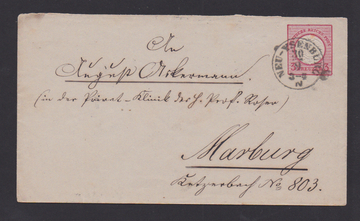 An
August Ackermann.
(in der Privat-Klinik des H. Prof. Roser)
Marburg
Ketzerbach No 803.
NEU-YSENBURG
10